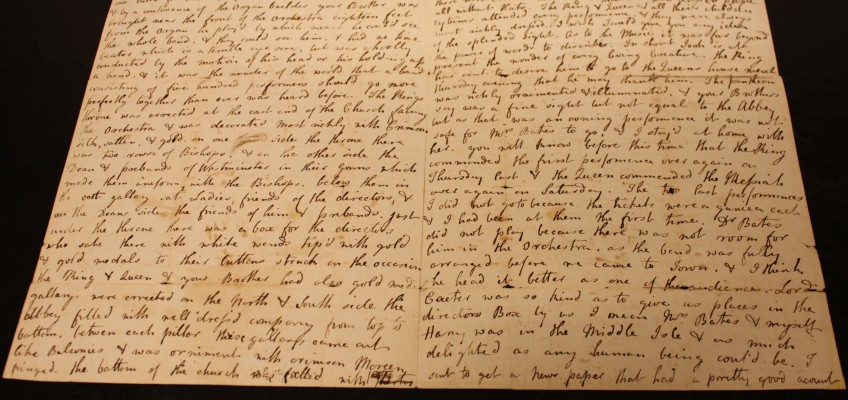 & by a contrivance of the Organ builder your Brother was
brought near the front of the Orchestra eighteen feet
from the organ he play'd by which means he could see
the whole band, & they could see him, & had no time
beater which is a horrible eye sore, but was wholly
conducted by the motion of his head or his holding up
a hand. & it was the wonder of the world that a band
consisting of five hundred performers should go more
perfectly together than ever was heard before. The Kings
throne was errected at the east end of the Church facing
the Orchestra & was decorated most richly with Crimson
silk, satten, & gold, on one side the throne there
was two rows of Bishops, & on the other side the
Dean & prebands of Westminster in their gowns which
made them uneform with the Bishops. below them in
the gallary sat Ladies, friends of the directors, &
on the Deans side the friends of him & prebands. Just
under the throne there was a box for the directors
who sate there with white wands tip'd with gold
& gold medals to their buttons struck on the occasion
the King & Queen & your Brother had also gold
gallarys were errected on the North & South side the
abbey filled with well dress'd company from top to
bottom, between each pillar these gallarys came out
like Balconies & was ornements with crimson Moreen
fringed. the bottom of the church was filled with
that Platy. The King & Queen & all their
attended every performance & they were always
most richly dress'd. I wish I could give you any idea
of the splended sight. As to the Musick it was far beyond
the power of words to discribe. In short Joah is at
present the wonder of every living Creature. the King
has sent to desire him to go to the Queens house next
thursday evening that he may thank him. The pantheon
was richly ornemented & illuminated, & your Brothers
was a fine sight but not equal to the Abbey
but as that was an evening performence it was not
safe for Mrs Bates to go & I stay'd at home with
her. you will know before this time that the King
commended the first performence over again on
Thursday last & the Queen commended the Messiah
over again on Saturday. The last performences
I did not go to because the tickets were a guniea each
& I had been at them the first time. Dr Bates
did not play because there was not room for
him in the Orchestra, as the band was fully
arranged before we came to Town, & I think
he head it better as one of the audience. Lord
Exeter was so kind as to give us places in the
directors Box by us I mean Mrs Bates & myself
Harry was in the Middle Isle & as much
delighted as any human being could be. I
sent to get a News paper that had a pretty good acount